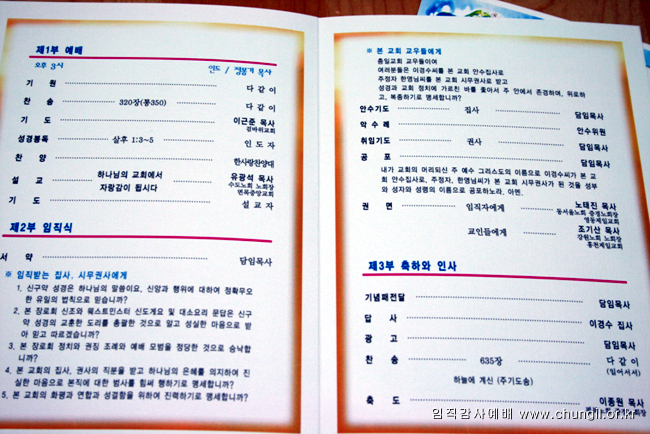 제1부 예배
오후 3시 인도 / 정봉기 목사
기 원 다 같 이
찬 송 320장(통350) 다 같 이
기 도 이근준 목사
검바위교회
성경봉독 살후 1:3~5 인 도 자
찬 양 한사랑찬양대
설 교 하나님의 교회에서
자랑감이 됩시다
유광석 목사
수도노회 노회장
면목중앙교회
기 도 설 교 자
제2부 임직식
서 약 담임목사
※ 임직받는 집사, 시무권사에게
1. 신구약 성경은 하나님의 말씀이요, 신앙과 행위에 대하여 정확무오
한 유일의 법칙으로 믿습니까?
2. 본 장로회 신조와 웨스트민스터 신도게요 및 대소요리 문답은 신구
약 성경의 교훈한 도리를 총괄한 것으로 알고 성실한 마음으로 받
아 믿고 따르겠습니까?
3. 본 장로회 정치와 권징 조례와 예배 모범을 정당한 것으로 승낙합
니까?
4. 본 교회의 집사, 권사의 직분을 받고 하나님의 은혜를 의지하여 진
실한 마음으로 본직에 대한 범사를 힘써 행하기로 맹세합니까?
5. 본 교회의 화평과 연합과 성결함을 위하여 진력하기로 맹세합니까?
※ 본 교회 교우들에게
충일교회 교우들이여
여러분들은 이경수씨를 본 교회 안수집사로
주정자 한영님씨를 본 교회 시무권사로 받고
성경과 교회 정치에 가르친 바를 좇아서 주 안에서 존경하며, 위로하
고, 복종하기로 맹세합니까?
안수기도 집사 담임목사
악 수 례 안수위원
취임기도 권사 담임목사
공 포 담임목사
내가 교회의 머리되신 주 예수 그리스도의 이름으로 이경수씨가 본 교
회 안수집사로, 주정자, 한영님씨가 본 교회 시무권사가 된 것을 성부
와 성자와 성령의 이름으로 공포하노라. 아멘.
권 면 임직자에게 노태진 목사
동서울노회 증경노회장
영동제일교회
교인들에게 조기산 목사
강원노회 노회장
홍천제일교회
제3부 축하와 인사
기념패전달 담임목사
답 사 이경수 집사
광 고 담임목사
찬 송 635장 다 같 이
(일어서서)
하늘에 계신 (주기도송)
축 도 이종원 목사
임직감사예배 www.chungil.or.kr